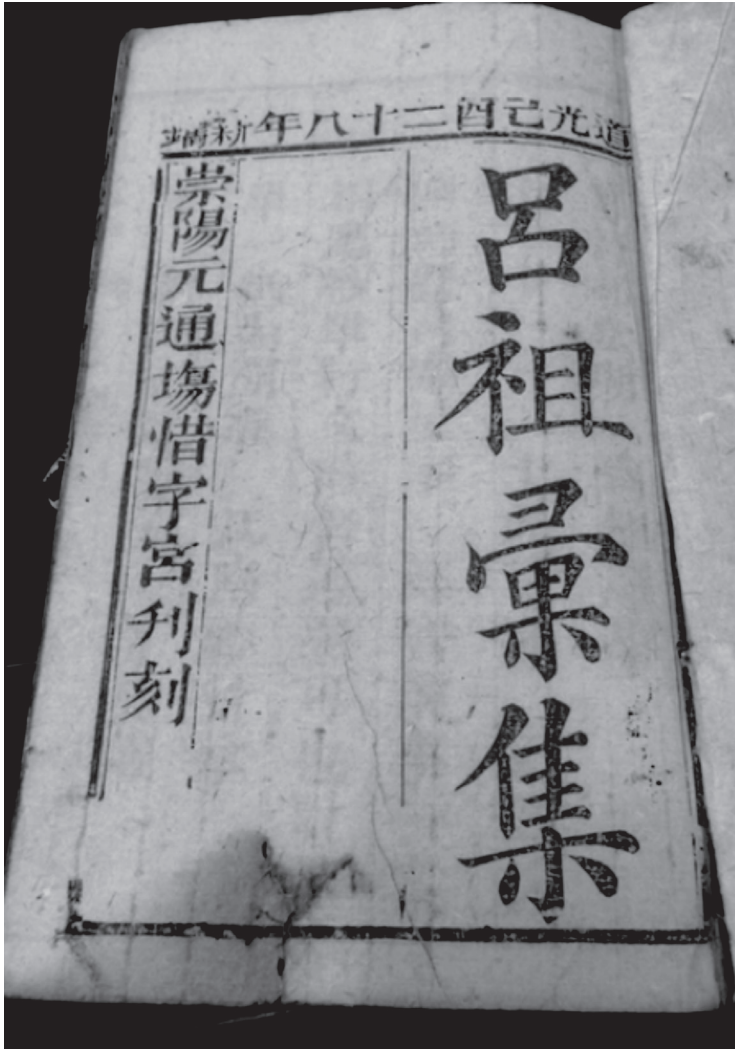 道光己酉二十八年新鐫
呂祖彙集
崇陽元通塲惜字宮刋刻